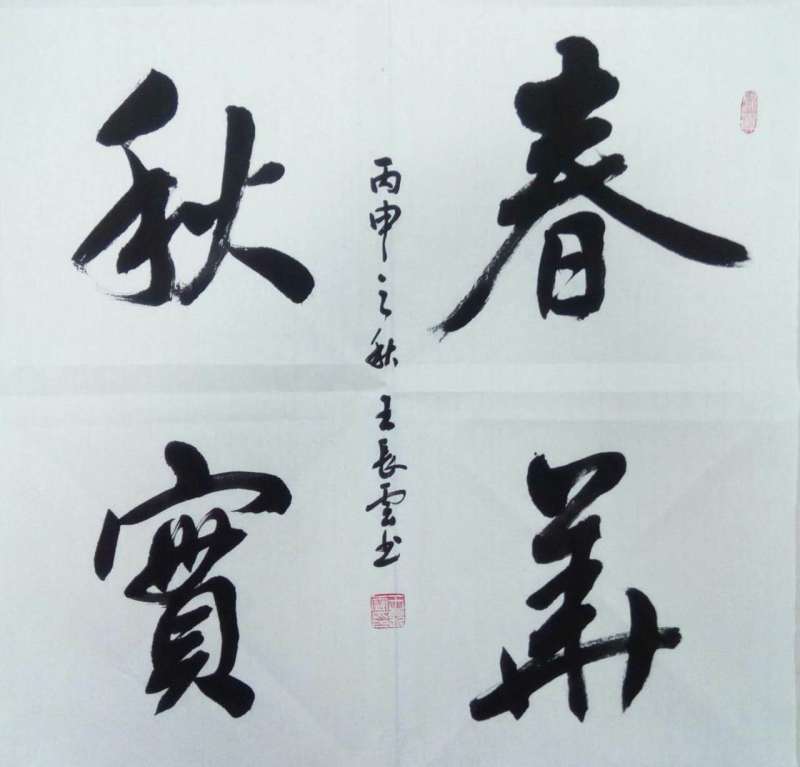 春華
秋實
丙申之秋王長雲书